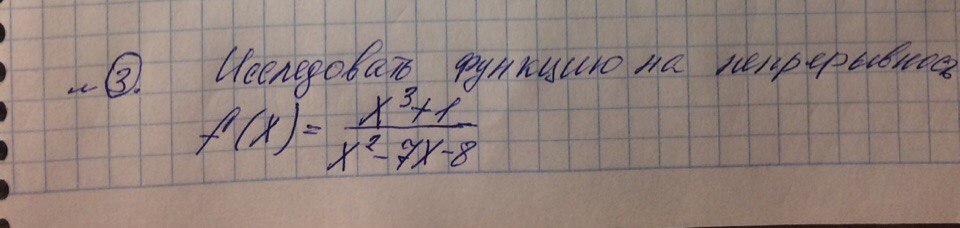 № 3. Исследовать функцию на непрерывность
f(x) = \frac{x^3+1}{x^2-7x-8}